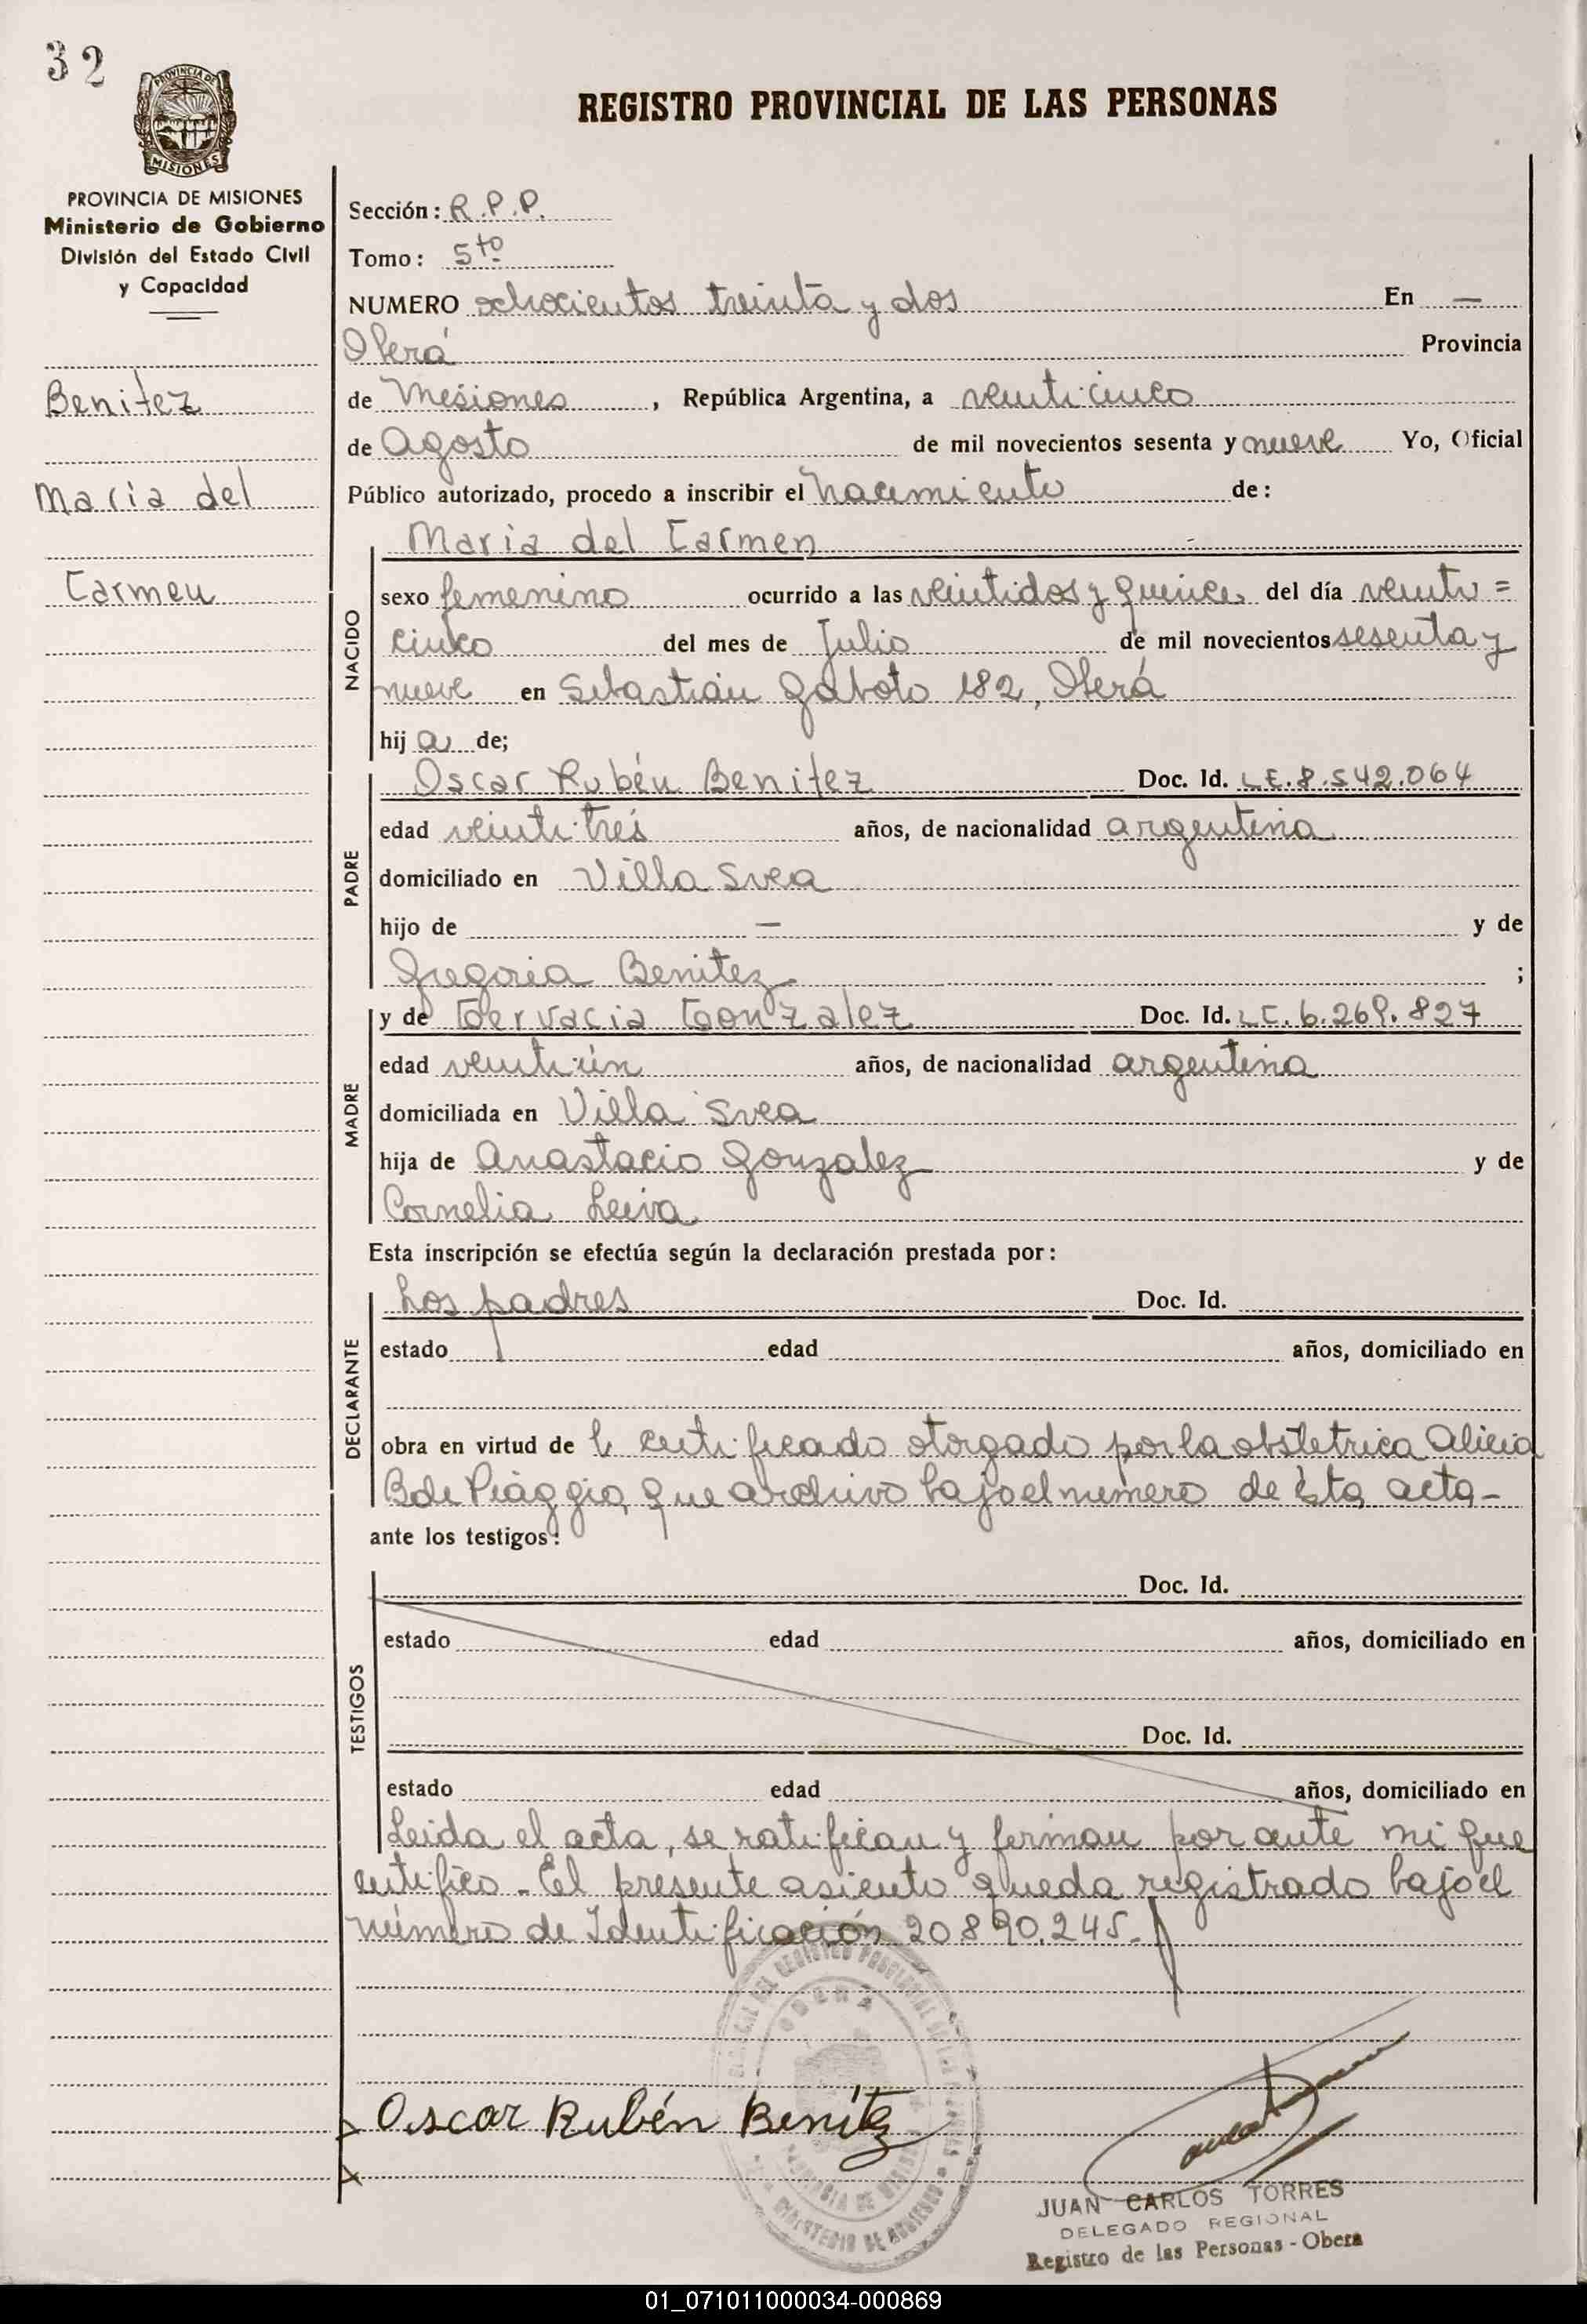 32
PROVINCIA DE
MISIONES
REGISTRO PROVINCIAL DE LAS PERSONAS
PROVINCIA DE MISIONES
Ministerio de Gobierno
División del Estado Civil
y Capacidad
Benitez
Maria del
Carmen
Sección: R.P.P.
Tomo: 5to
NUMERO ochocientos treinta y dos En —
Oberá Provincia
de Misiones, República Argentina, a veinticinco
de Agosto de mil novecientos sesenta y nueve Yo, Oficial
Público autorizado, procedo a inscribir el nacimiento de:
Maria del Carmen
NACIDO
sexo femenino ocurrido a las veintidos y quince del día veinti=
cinco del mes de Julio de mil novecientos sesenta y
nueve en Sebastián Gaboto 182, Oberá
hija de;
PADRE
Oscar Rubén Benitez Doc. Id. L.E.8.542.064
edad veintitrés años, de nacionalidad argentina
domiciliado en Villa Svea
hijo de — y de
Gregoria Benitez ;
MADRE
y de Gervacia Gonzalez Doc. Id. L.C. 6.269.827
edad veintiún años, de nacionalidad argentina
domiciliada en Villa Svea
hija de Anastacio Gonzalez y de
Cornelia Leiva
Esta inscripción se efectúa según la declaración prestada por:
DECLARANTE
Los padres Doc. Id.
estado edad años, domiciliado en
obra en virtud de certificado otorgado por la obstetrica Alicia
B de Piaggio, que archivo bajo el número de ésta acta-
ante los testigos:
TESTIGOS
Doc. Id.
estado edad años, domiciliado en
Doc. Id.
estado edad años, domiciliado en
Leida el acta, se ratifican y firman por ante mi que
certifico - El presente asiento queda registrado bajo el
número de Identificación 20.890.245.-
Oscar Rubén Benítez
JUAN CARLOS TORRES
DELEGADO REGIONAL
Registro de las Personas - Obera
01_071011000034-000869